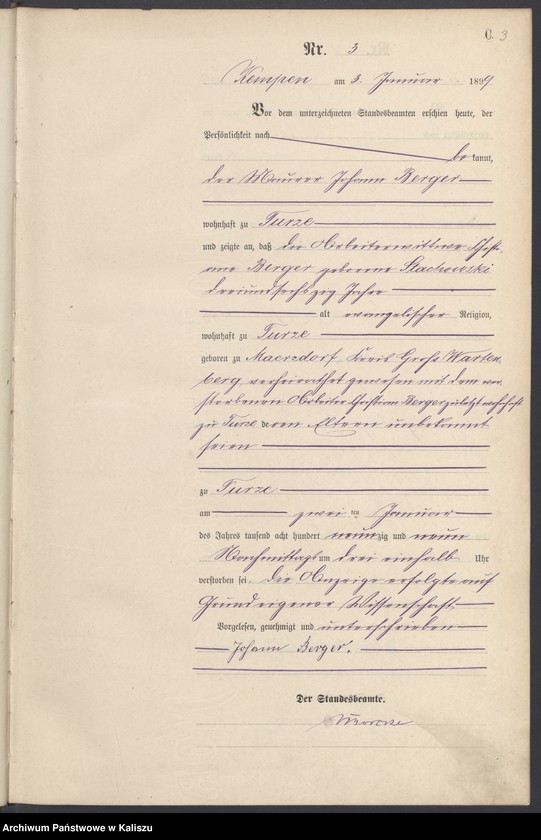 C. 3
Nr. 3
Kempen am 3. Januar 1899
Vor dem unterzeichneten Standesbeamten erschien heute, der
Persönlichkeit nach
be kannt,
der Maurer Johann Berger
wohnhaft zu Turze
und zeigte an, daß die Arbeiterwittwe
Berger geborene Stachowski
dreiundsechszig Jahre
alt evangelischer Religion,
wohnhaft zu Turze
geboren zu Maerzdorf Kreis Groß Warten
berg, verheirathet gewesen mit dem ver
storbenen Arbeiter Berger zuletzt wohnhaft
zu Turze deren Eltern unbekannt
seien
zu Turze
am zwei ten Januar
des Jahres tausend acht hundert neunzig und neun
Nachmittags um drei einhalb Uhr
verstorben sei. Die Anzeige erfolgte auf
Grund eigener Wissenschaft
Vorgelesen, genehmigt und unterschrieben
Johann Berger.
Der Standesbeamte.
Archiwum Państwowe w Kaliszu